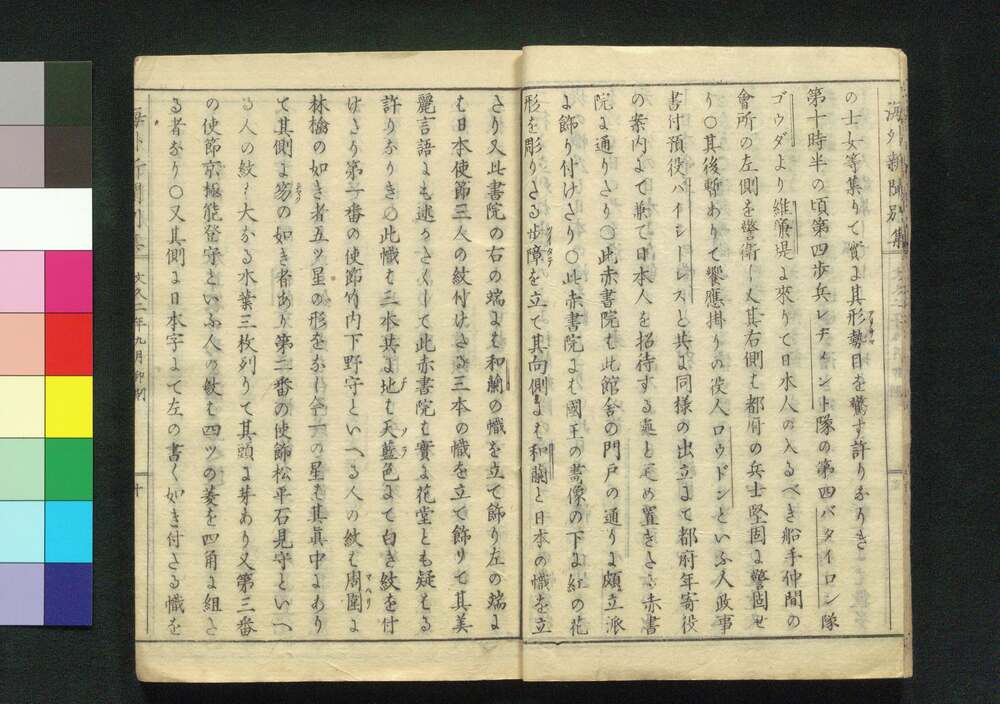 海外新聞別集
の士女等集りて實に其形勢目を驚す許りなりき
第十時半の頃第四歩兵レヂメント隊の第四バタイロン隊
ゴウダより維廉堤に來りて日本人の入るべき船手仲間の
會所の左側を警衛し又其右側は都府の兵士堅固に警固せ
り〇其後暫ありて饗應掛りの役人ロウドンといふ人政事
書付預役バイシーレスと共に同様の出立にて都府年寄役
の案内よて兼て日本人を招待する處と定め置きたる赤書
院に通りたり〇此赤書院は此館舎の門戸の通りに頗立派
に飾り付けたり〇此赤書院には國王の畫像の下に紅の花
形を彫りたる歩障を立て其向側には和蘭と日本の幟を立
たり又此書院の右の端には和蘭の幟を立て飾り左の端に
は日本使節三人の紋付けたる三本の幟を立て飾りて其美
麗言語にも述がたくして此赤書院は實に花堂とも疑はる
許りなりき〇此幟は三本共に地は天藍色にて白き紋を付
けたり第一番の使節竹内下野守といへる人の紋は周圍に
林檎の如き者五ツ星の形をなし今一の星は其眞中にあり
て其側に笏の如き者あり第二番の使節松平石見守といへ
る人の紋は大なる水葉三枚列りて其頭に芽あり又第三番
の使節京極能登守といふ人の紋は四ツの菱を四角に組た
る者なり〇又其側に日本字にて左の書く如き付たる幟を
文久二年九月印制
十